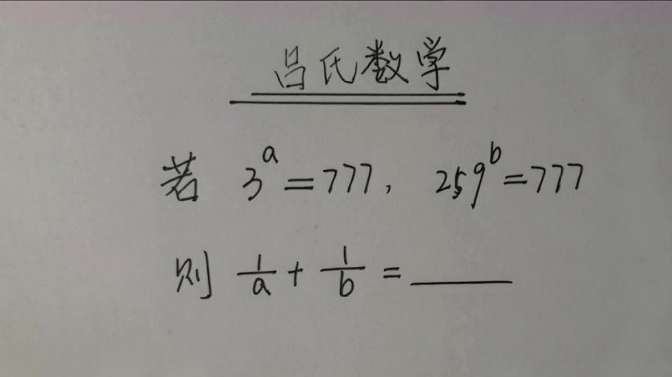 吕氏数学
若 3^a=777, 259^b=777
则 1/a + 1/b = ____